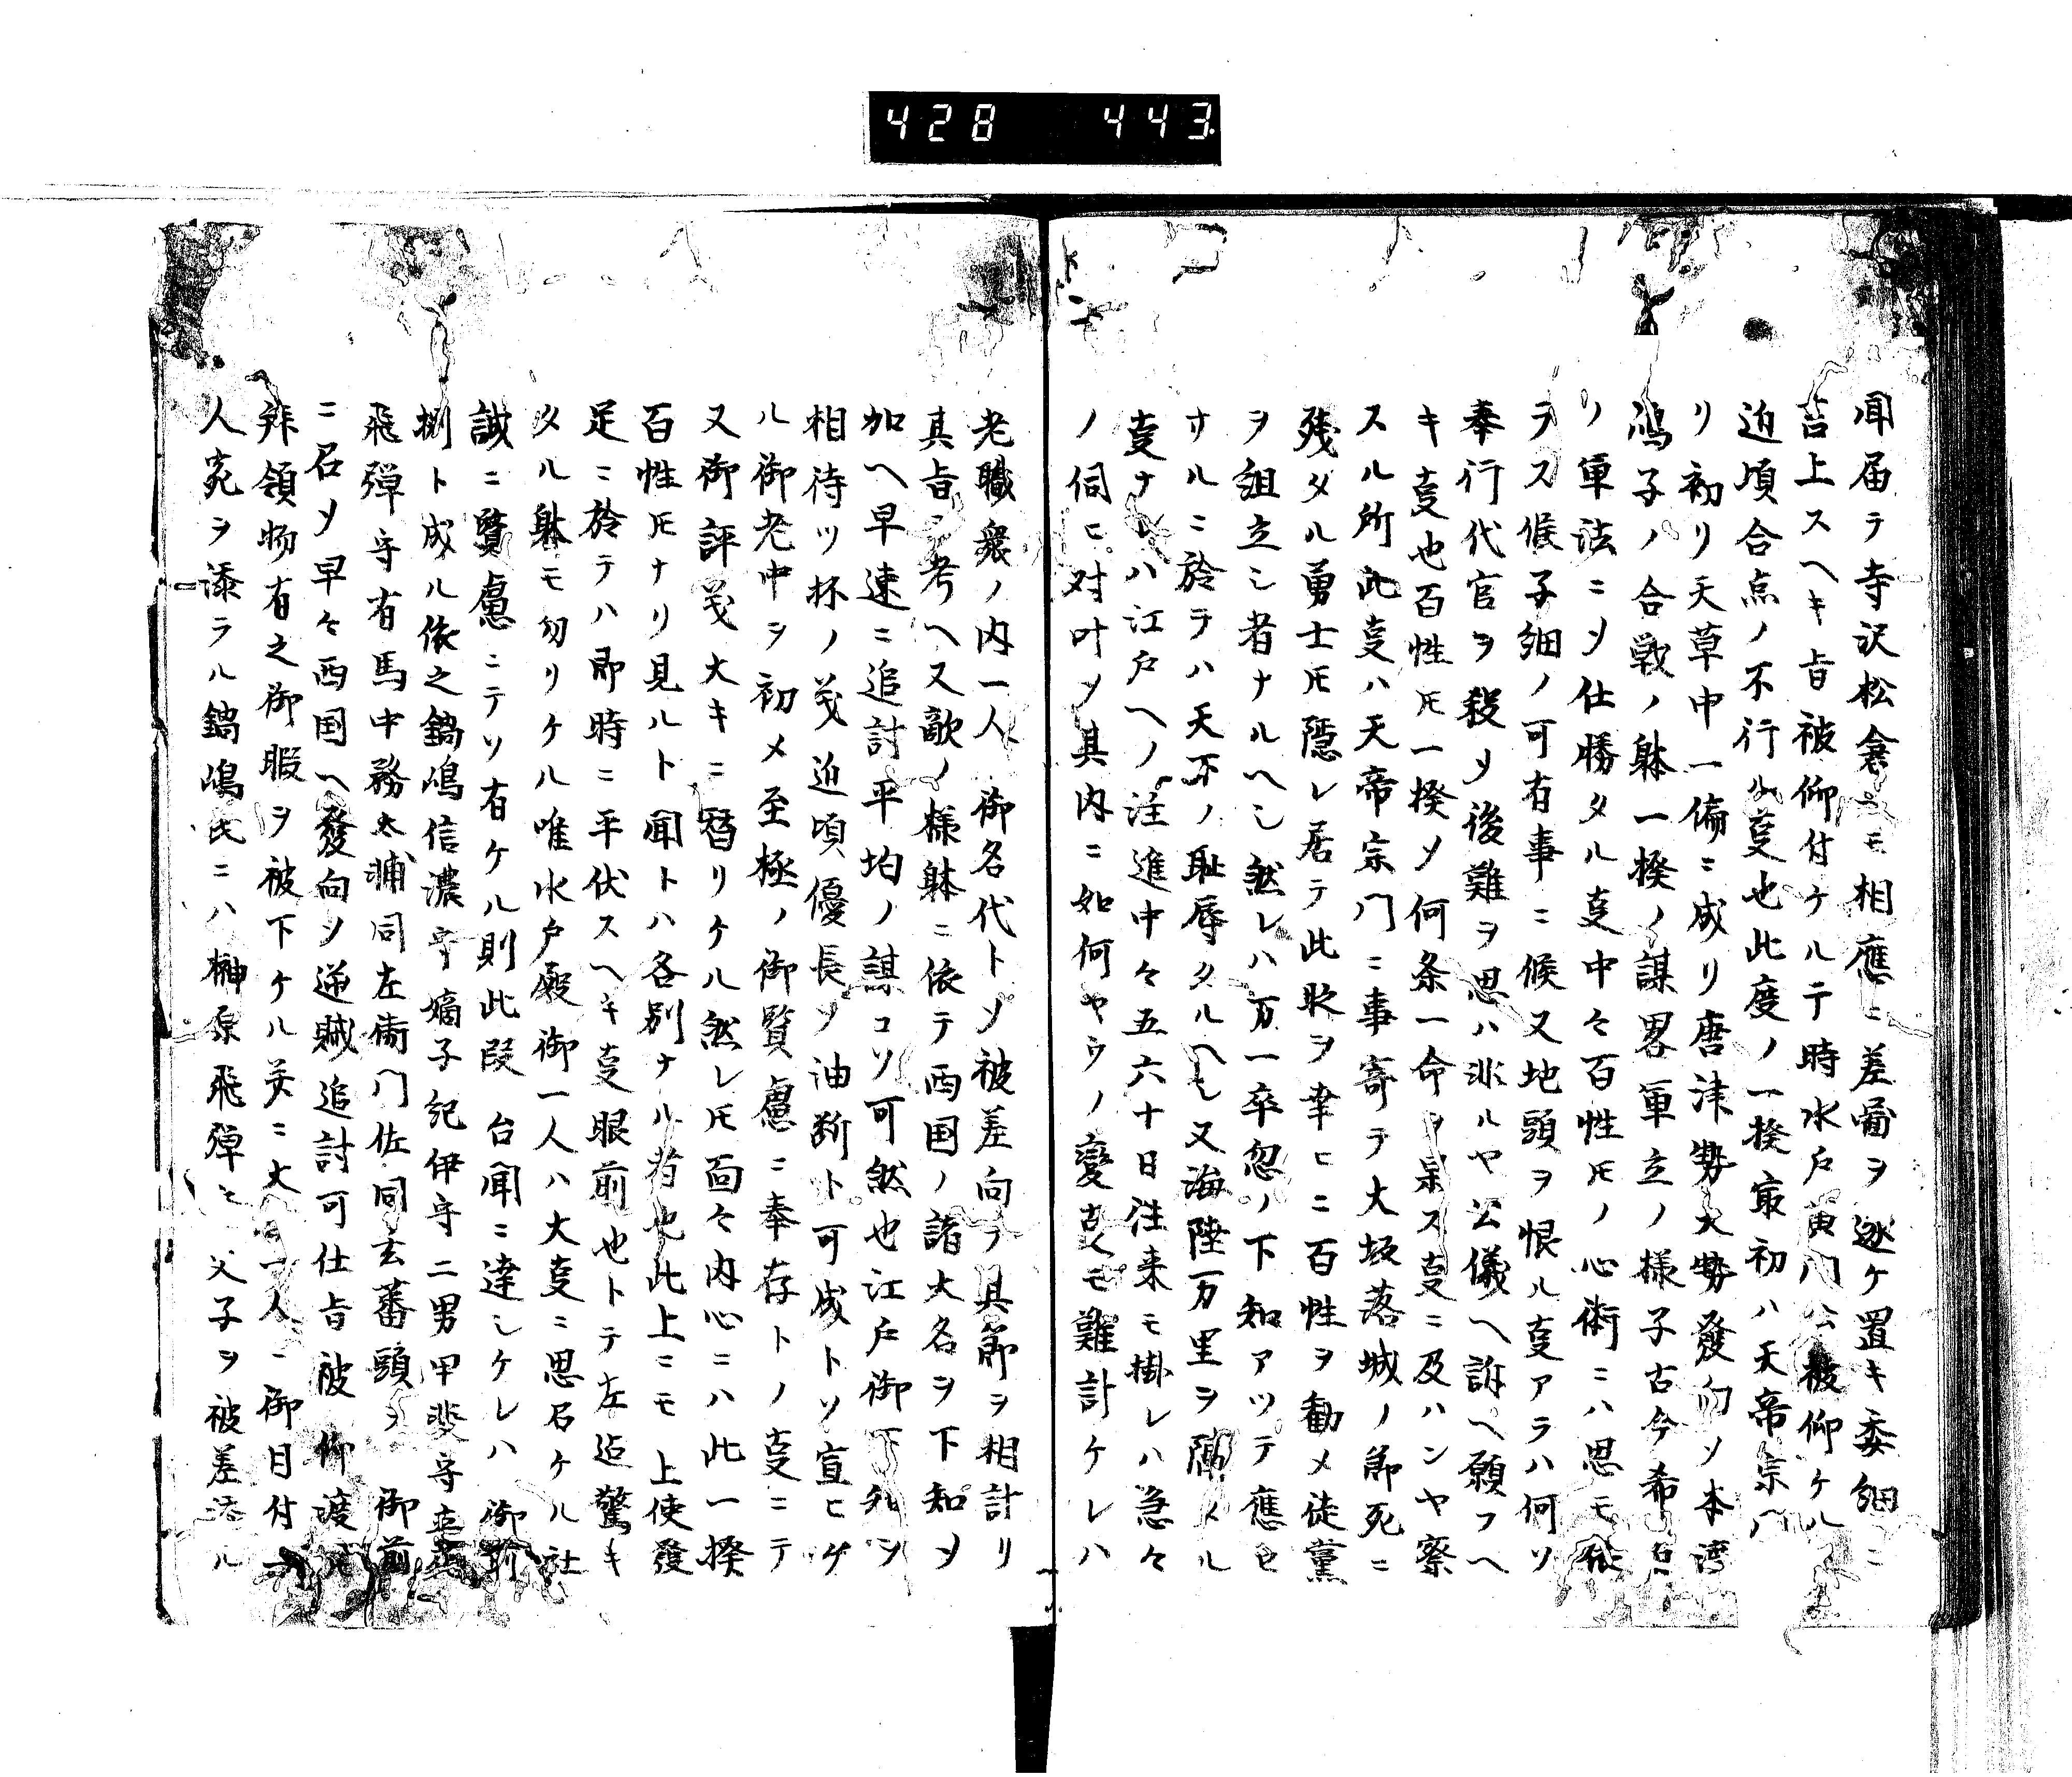 428 443
聞届テ寺沢松倉ニモ相應ニ差圖ヲ遂ケ置キ委細ニ
言上スヘキ旨被仰付ケルテ時水戸黄門公被仰ケル
近頃合点ノ不行ル叓也此度ノ一揆最初ハ天帝宗門
リ初リ天草中一偏ニ成リ唐津勢大勢發向ソ本渡
嶋子ノ合戦ノ躰一揆ノ謀畧軍立ノ様子古今希有ニ
ソ軍法ニソ仕勝タル叓中々百性𪜈ノ心術ニハ思モ依
ラス候子細ノ可有事ニ候又地頭ヲ恨ル叓アラハ何ソ
奉行代官ヲ殺メ後難ヲ思ハ非ルヤ公儀ヘ訴ヘ願フヘ
キ叓也百性𪜈一揆ソ何条一命ヲ果ス叓ニ及ハンヤ察
スル所此叓ハ天帝宗門ニ事寄テ大坂落城ノ節死ニ
残タル勇士𪜈隠レ居テ此𠮟ヲ幸ヒニ百性ヲ勧メ徒黨
ヲ徂立シ者ナルヘシ然レハ万一卒忽ノ下知アツテ應セ
サルニ於テハ天下ノ恥辱タルヘシ又海陸万里ヲ隔メル
叓ナレハ江戸ヘノ注進中々五六十日往来モ掛レハ急々
ノ伺ヒ対叶ソ其内ニ如何ヤウノ變𫞂モ難計ケレハ
老職衆ノ内一人御名代トソ被差向テ其節ヲ相計リ
其旨ヲ考ヘ又敵ノ様躰ニ依テ西国ノ諸大名ヲ下知ソ
加ヘ早速ニ追討平均ノ謀コソ可然也江戸御下知ヲ
相待ツ杯ノ義近頃優長ソ油断ト可成トソ宣ヒケ
ル御老中ヲ初メ至極ノ御賢慮ニ奉存トノ叓ニテ
又御評義大キニ替リケル然レ𪜈面々内心ニハ此一揆
百性𪜈ナリ見ルト聞トハ各別ナル者也此上ニモ上使發
足ニ於テハ即時ニ平伏スヘキ叓眼前也トテ左迠驚キ
タル躰モ勿リケル唯水戸殿御一人ハ大叓ニ思召ケル社
誠ニ賢慮ニテソ有ケル則此段台聞ニ達シケレハ御前
捌ト成ル依之鍋嶋信濃守嫡子紀伊守二男甲斐守立花
飛彈守有馬中務太浦同左衛門佐同玄蕃頭ヲ御前
ニ召ソ早々西国ヘ發向ソ逆賊追討可仕旨被仰渡ル
拜領物有之御暇ヲ被下ケル美ニ大一人ニ御目付一
人宛ヲ添ラル鍋嶋氏ニハ榊原飛彈々父子ヲ被差添ル